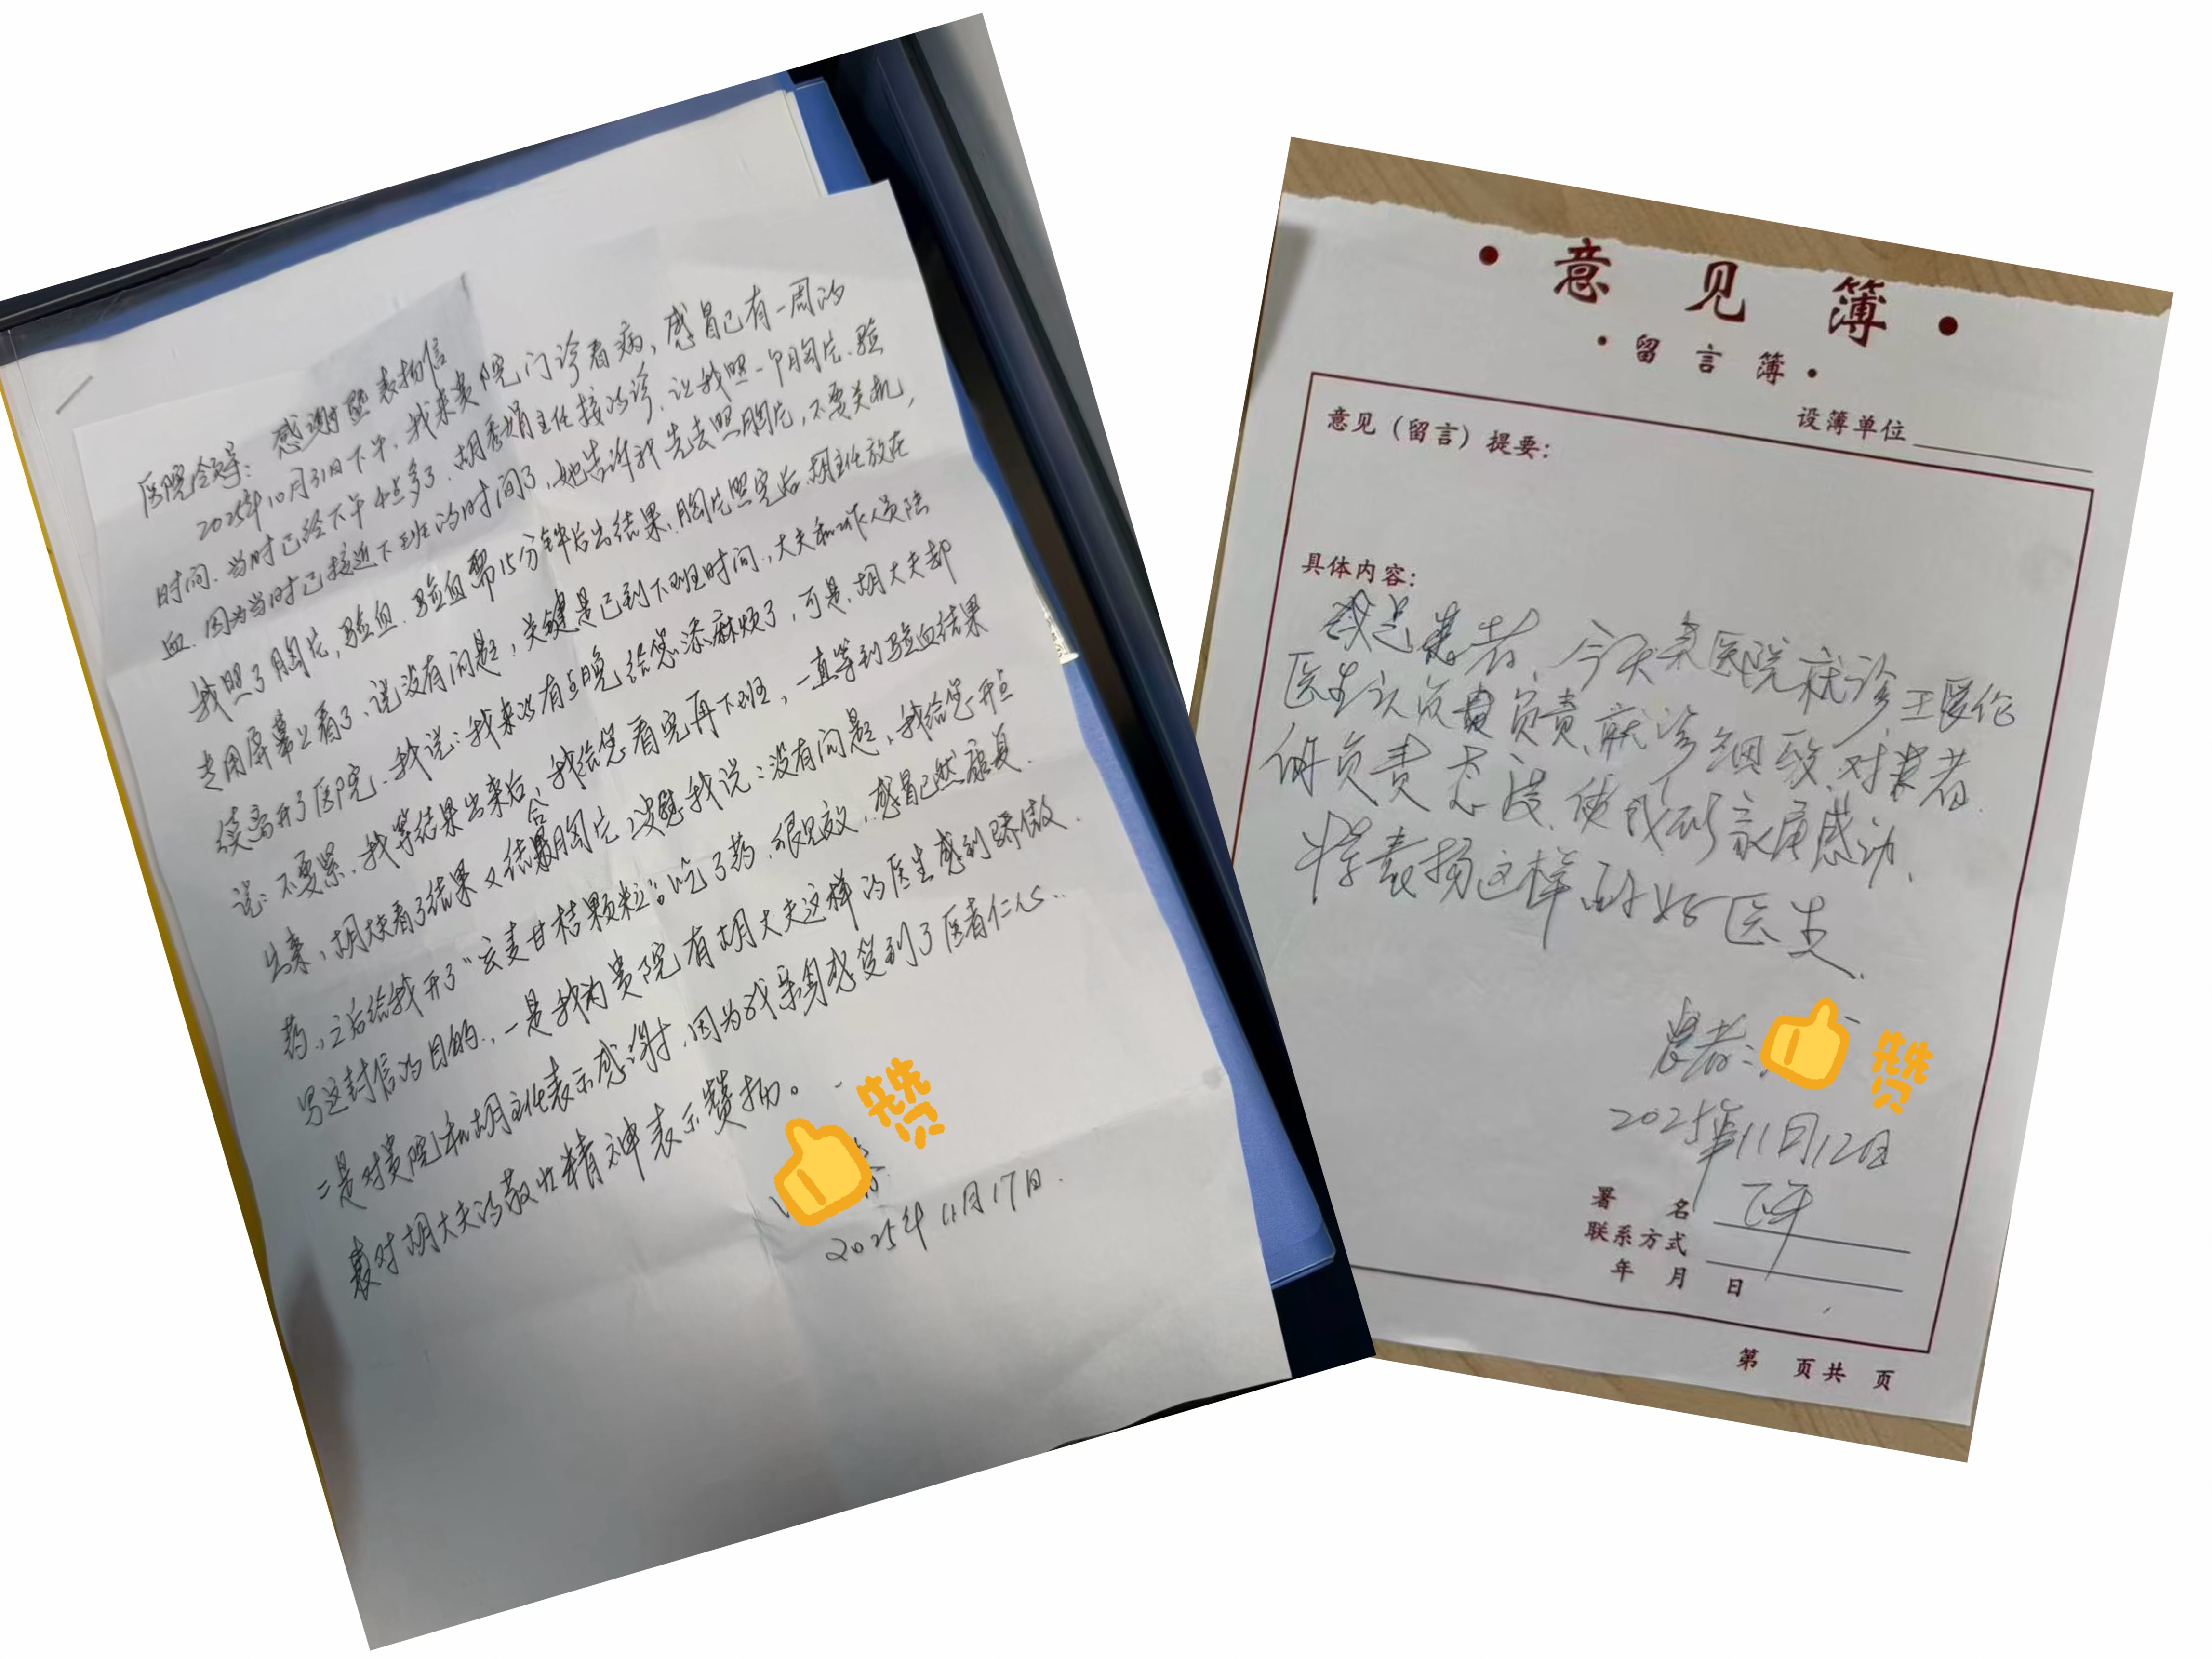 感谢暨表扬信
医院领导：
2025年10月31日下午，我来贵院门诊看病，感冒已有一周的
时间，当时已经下午4点多了，胡秀娟主任接的诊，让我照一个胸片、验
血，因为当时已接近下班的时间了，她告诉我先去照胸片，不要关机，
我照了胸片，验血，验血需15分钟后出结果，胸片照完后，胡主任放在
专用屏幕上看了，说没有问题，关键是已到下班时间，大夫和工作人员陆
续离开了医院，我说：我来的有点晚，给您添麻烦了，可是，胡大夫却
说：不要紧，我等结果出来后，我给您看完再下班，一直等到验血结果
出来，胡大夫看了结果又结合胸片，对我说：没有问题，我给您开点
药，之后给我开了“玄麦甘桔颗粒”。吃了药，很见效，感冒已然康复。
写这封信的目的，一是我为贵院有胡大夫这样的医生感到骄傲，
二是对贵院和胡主任表示感谢，因为我亲身感受到了医者仁心..
对胡大夫的敬业精神表示赞扬。
赞
2025年11月17日.
•意见簿•
•留言簿•
设簿单位
意见（留言）提要：
具体内容：
我是患者，今天来医院就诊王爱伦
医生认真负责，就诊细致，对患者
的负责态度，使我和家属感动，
特表扬这样的好医生.
患者：
赞
2025年11月12日
署 名
联系方式
年 月 日
第 页共 页